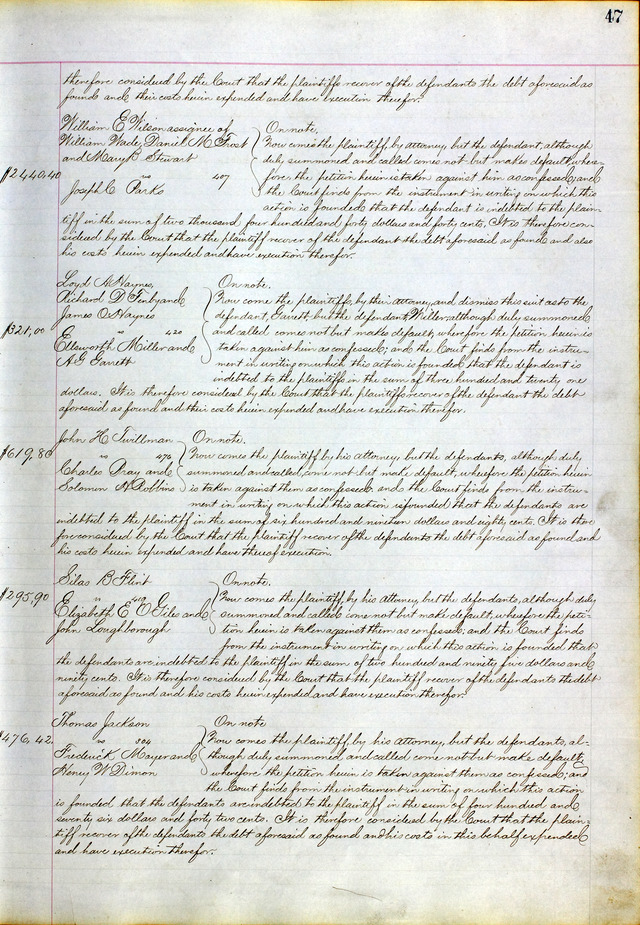 47
therefore considered by the Court that the plaintiffs recover of the defendants the debt aforesaid as
found and their costs herein expended and have execution therefor.
William E Wilson assignee of
William Wade, Daniel M Frost
and Mary B Stewart
$2440,40
vs 407
Joseph C Parks
On note,
Now comes the plaintiff, by attorney, but the defendant, although
duly summoned and called comes not but makes default, where-
fore, the petition herein is taken against him as confessed, and
the Court finds from the instrument in writing on which this
action is founded, that the defendant is indebted to the plain-
tiff in the sum of two thousand, four hundred and forty dollars and forty cents, It is therefore con-
sidered by the Court that the plaintiff recover of the defendant the debt aforesaid as found and also
his costs herein expended and have execution therefor.
Loyd A Haynes,
Richard D and
James O Haynes
$321,00
vs 420
Ellsworth Miller and
A G Garrett
On note.
Now come the plaintiffs, by their attorney, and dismiss this suit as to the
defendant, Garrett, but the defendant, Miller, although duly summoned
and called comes not but makes default, wherefore the petition herein is
taken against him as confessed; and the Court finds from the instru-
ment in writing on which this action is founded, that the defendant is
indebted to the plaintiffs in the sum of three hundred and twenty one
dollars. It is therefore considered by the Court that the plaintiffs recover of the defendant the debt
aforesaid as found and their costs herein expended and have execution therefor.
John H Twillman
$619,80
vs 474
Charles Pray and
Solomon H Robbins
On note.
Now comes the plaintiff by his attorney, but the defendants, although duly
summoned and called, come not but make default, wherefore the petition herein
is taken against them as confessed, and the Court finds from the instru-
ment in writing on which this action is founded that the defendants are
indebted to the plaintiff in the sum of six hundred and nineteen dollars and eighty cents. It is there
fore considered by the Court that the plaintiff recover of the defendants the debt aforesaid as found and
his costs herein expended and have thereof execution.
Silas B Flint
$295,90
vs 419
Elizabeth E O Giles and
John Loughborough
On note.
Now comes the plaintiff, by his Attorney, but the defendants, although duly
summoned and called come not but make default, wherefore the peti-
tion herein is taken against them as confessed, and the Court finds
from the instrument in writing on which this action is founded that
the defendants are indebted to the plaintiff in the sum of two hundred and ninety five dollars and
ninety cents. It is therefore considered by the Court that the plaintiff recover of the defendants the debt
aforesaid as found and his costs herein expended and have execution therefor.
Thomas Jackson
$476,42.
vs 304
Frederick Mayer and
Henry W Dimon
On note
Now comes the plaintiff, by his attorney, but the defendants, al-
though duly summoned and called come not but make default,
wherefore the petition herein is taken against them as confessed; and
the Court finds from the instrument in writing on which this action
is founded that the defendants are indebted to the plaintiff in the sum of four hundred and
seventy six dollars and forty two cents. It is therefore considered by the Court that the plain-
tiff recover of the defendants the debt aforesaid as found and his costs in this behalf expended
and have execution therefor.